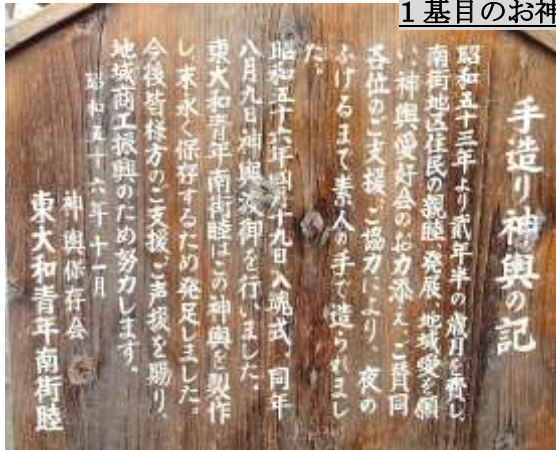 1基目のお神
手造り神輿の記
昭和五十三年より貳年半の歳月を費し、
南街地区住民の親睦、発展、地域愛を願
い、神輿愛好会のお力添え、ご賛同
各位のご支援、ご協力により、夜の
ふけるまで素人の手で造られまし
た。
昭和五十六年四月十九日入魂式、同年
八月九日神輿渡御を行いました。
東大和青年南街睦はこの神輿を製作
し末永く保存するため発足しました。
今後皆様方のご支援、ご声援を賜り、
地域商工振興のため努力します。
昭和五十六年十一月
神輿保存会
東大和青年南街睦